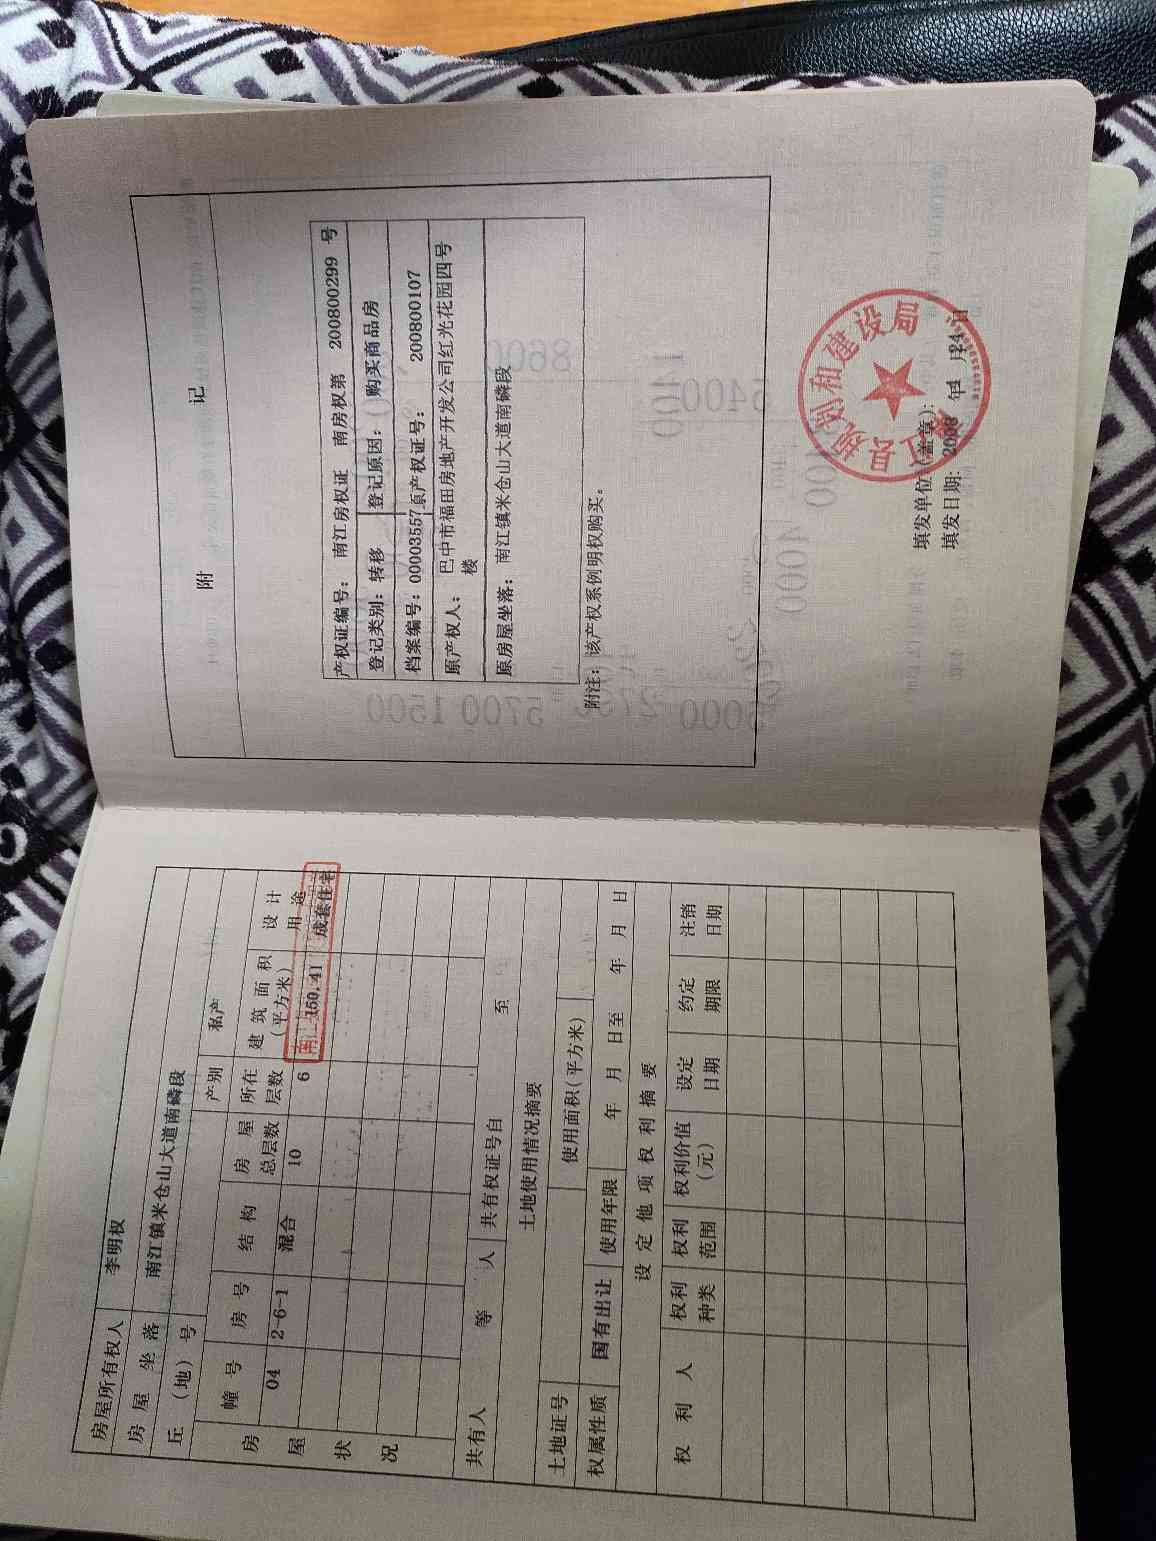 房屋所有权人 李明权
房屋坐落 南江镇米仓山大道南磷段
丘（地）号 产别 私产
房屋状况
幢号 房号 结构 房屋总层数 所在层数 建筑面积（平方米） 设计用途
04 2-6-1 混合 10 6 160.41 成套住宅
共有人 等 人 共有权证号自 至
土地使用情况摘要
土地证号 使用面积(平方米)
权属性质 国有出让 使用年限 年 月 日至 年 月 日
设定他项权利摘要
权利人 权利种类 权利范围 权利价值（元） 设定日期 约定期限 注销日期
附 记
产权证编号： 南江房权证 南房权第 200800299 号
登记类别：转移 登记原因：购买商品房
档案编号：00003557 原产权证号： 200800107
原产权人： 巴中市福田房地产开发公司红光花园四号
楼
原房屋坐落： 南江镇米仓山大道南磷段
附注：该产权系例明权购买。
县规划和建设局
填发单位（盖章）：
填发日期： 2008 年 月24日